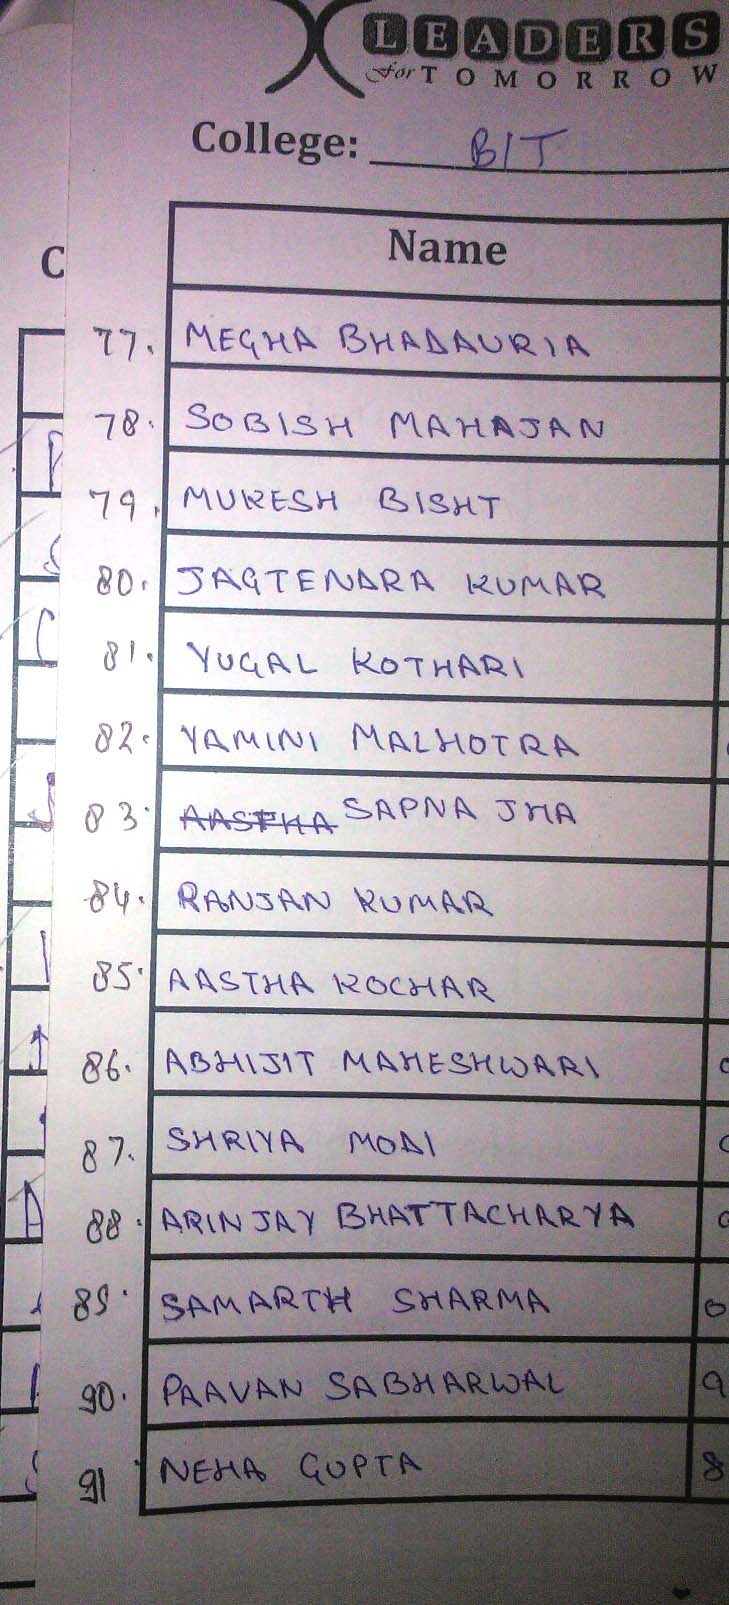 LEADERS
For TOMORROW
College: BIT
C
Name
77. MEGHA BHADAURIA
78. SOBISH MAHAJAN
79. MUKESH BISHT
80. JAGTENDRA KUMAR
81. YUGAL KOTHARI
82. YAMINI MALHOTRA
83. AASTHA SAPNA JHA
84. RANJAN KUMAR
85. AASTHA KOCHAR
86. ABHIJIT MAHESHWARI
87. SHRIYA MODI
88. ARINJAY BHATTACHARYA
89. SAMARTH SHARMA
90. PAAVAN SABHARWAL 9
91 NEHA GUPTA 8